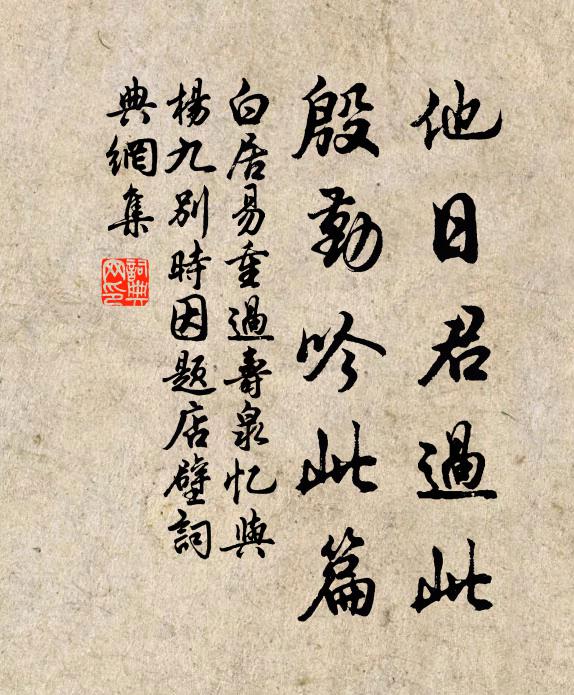 他日君過此
殷勤吟此篇
白居易重過壽泉忆與
楊九别時因题店壁詞
典網集
詞典網印